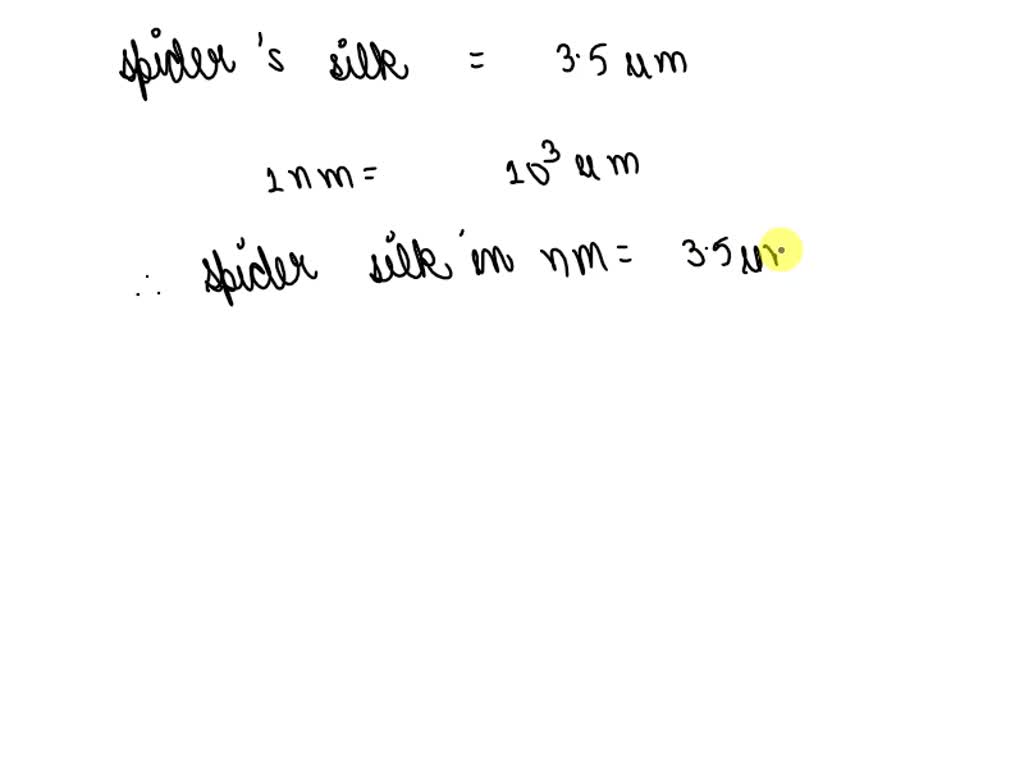 spider's silk = 3.5 μm
1nm = 10³ μm
∴ spider silk in nm = 3.5 μm